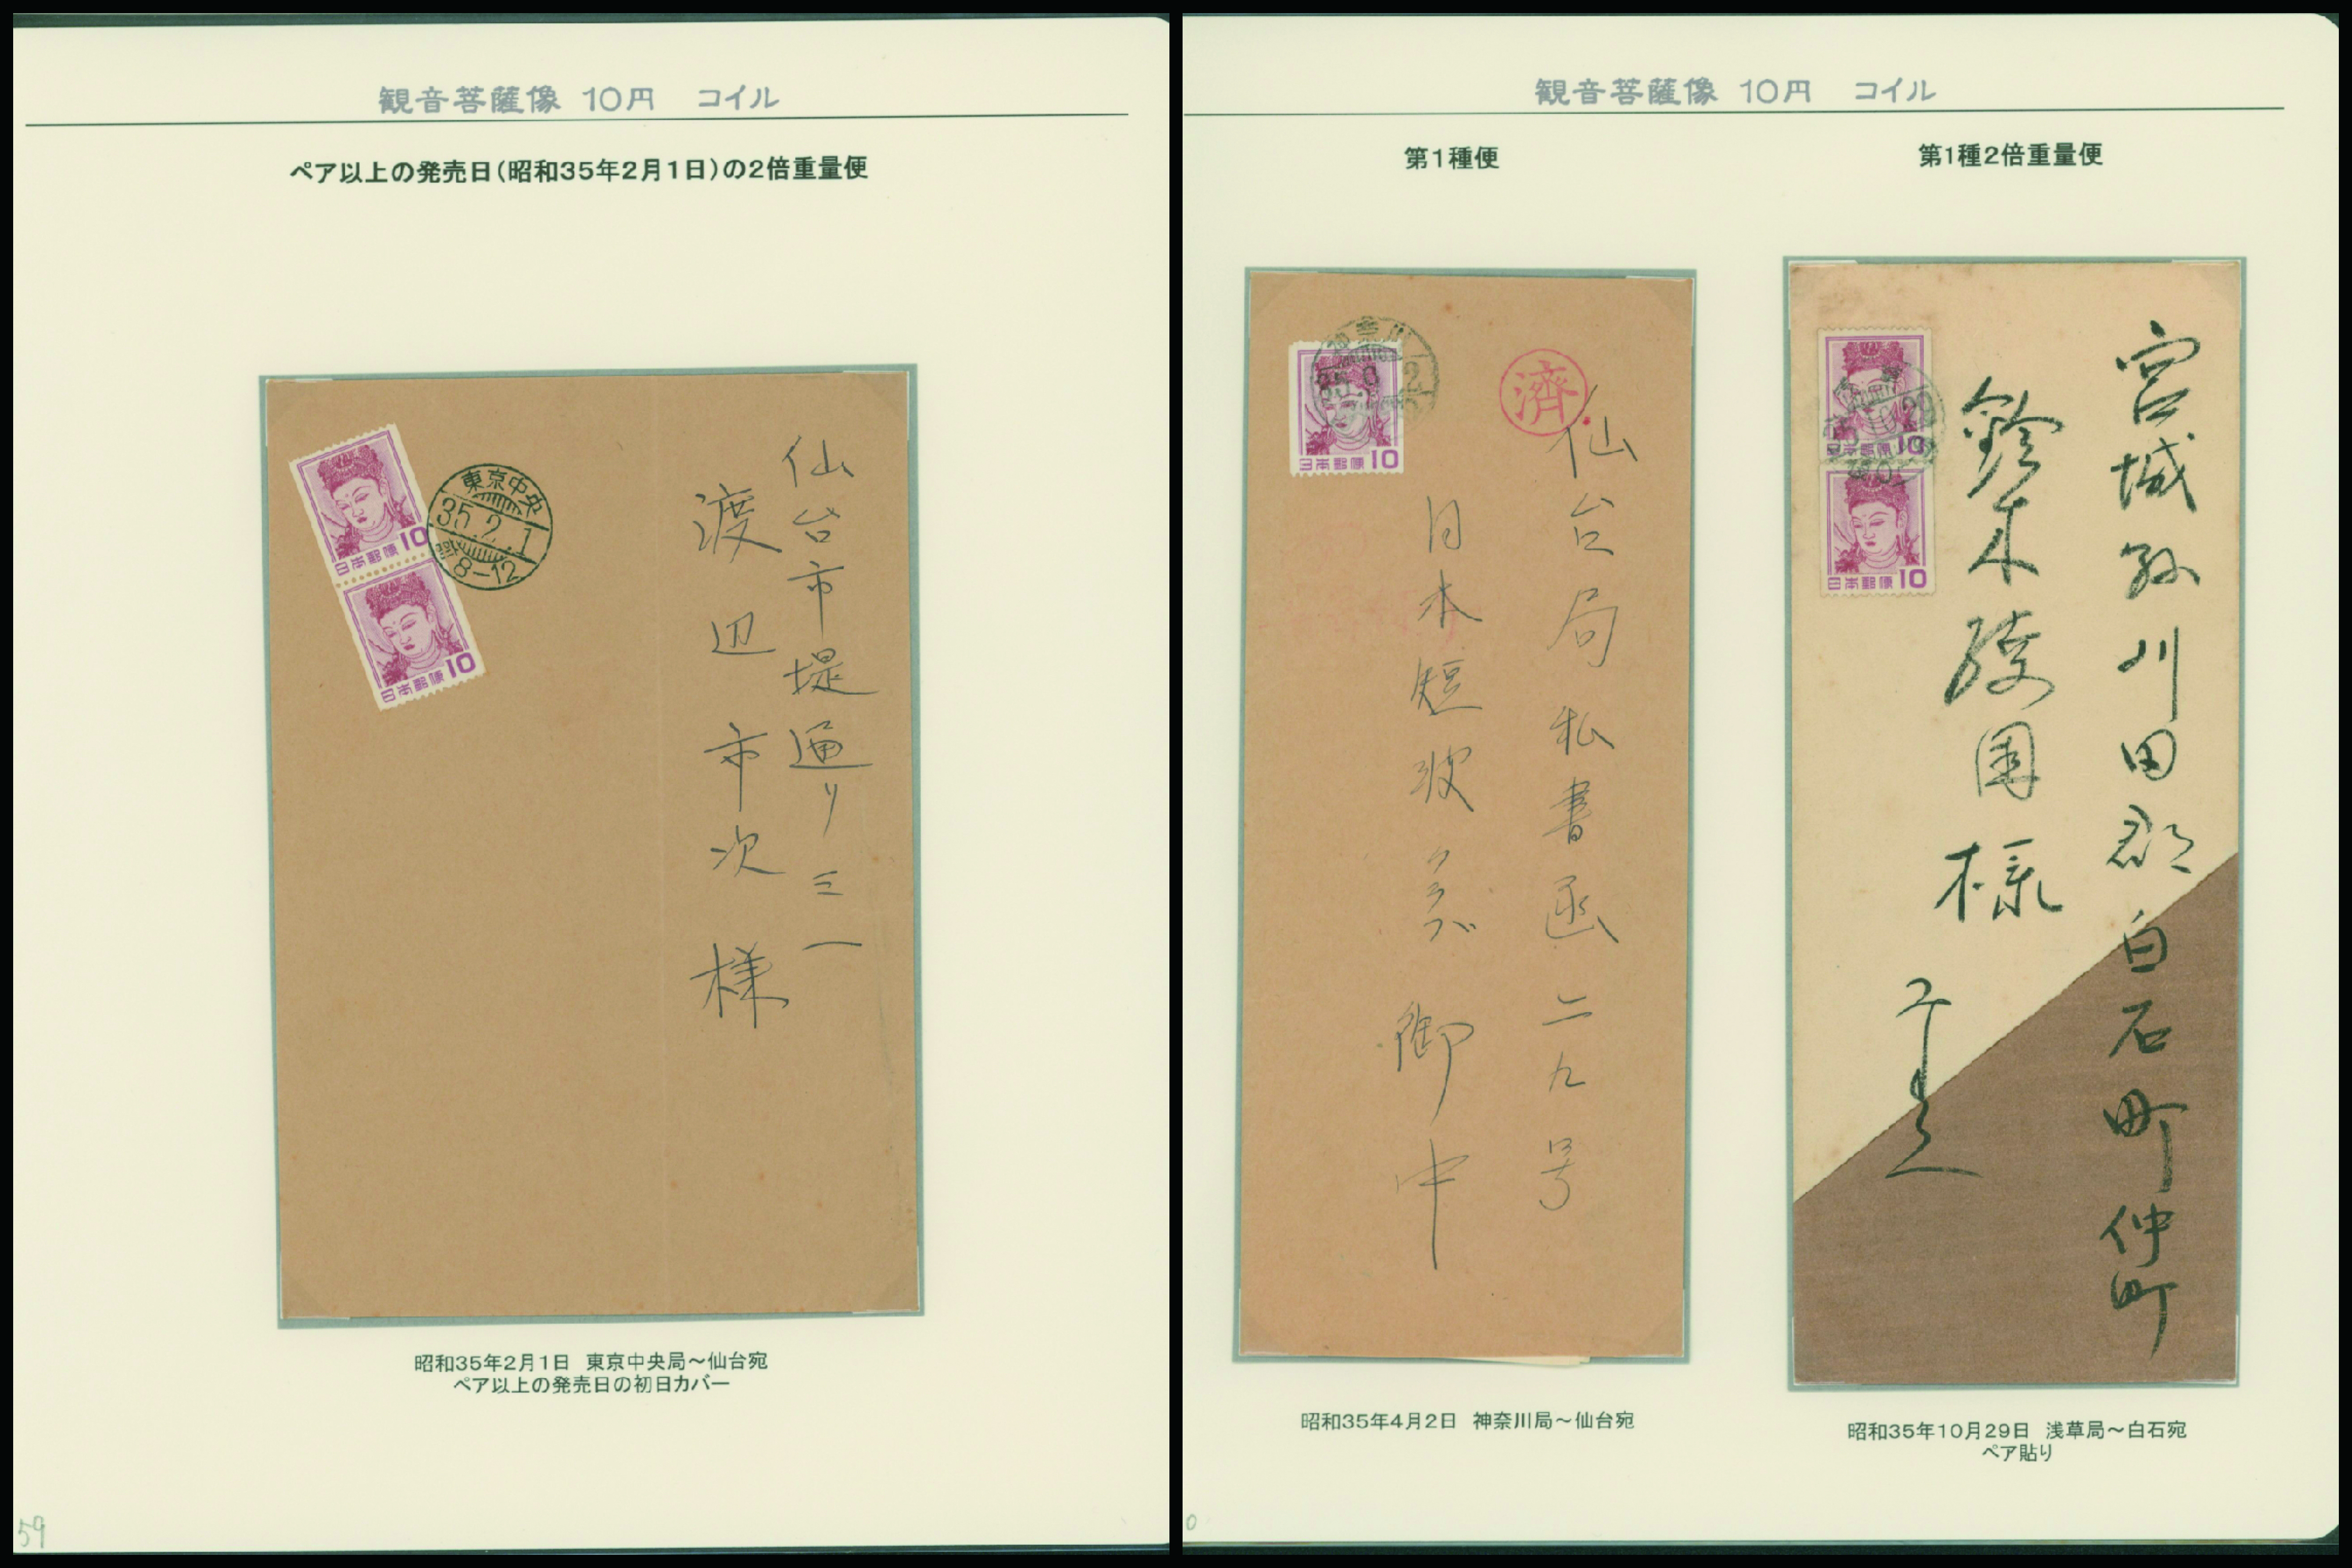 観音菩薩像 10円　コイル
ペア以上の発売日(昭和35年2月1日)の2倍重量便
日本郵便 10
日本郵便 10
東京中央
35.2.1
后8-12
仙台市堤通り三一
渡辺市次 様
昭和35年2月1日　東京中央局～仙台宛
ペア以上の発売日の初日カバー
59
観音菩薩像 10円　コイル
第1種便
日本郵便 10
神奈川
濟
仙台局私書函二九号
日本短波クラブ 御中
昭和35年4月2日　神奈川局～仙台宛
第1種2倍重量便
日本郵便 10
日本郵便 10
35.10.29
宮城県刈田郡白石町仲町
鈴木 様
昭和35年10月29日　浅草局～白石宛
ペア貼り
0